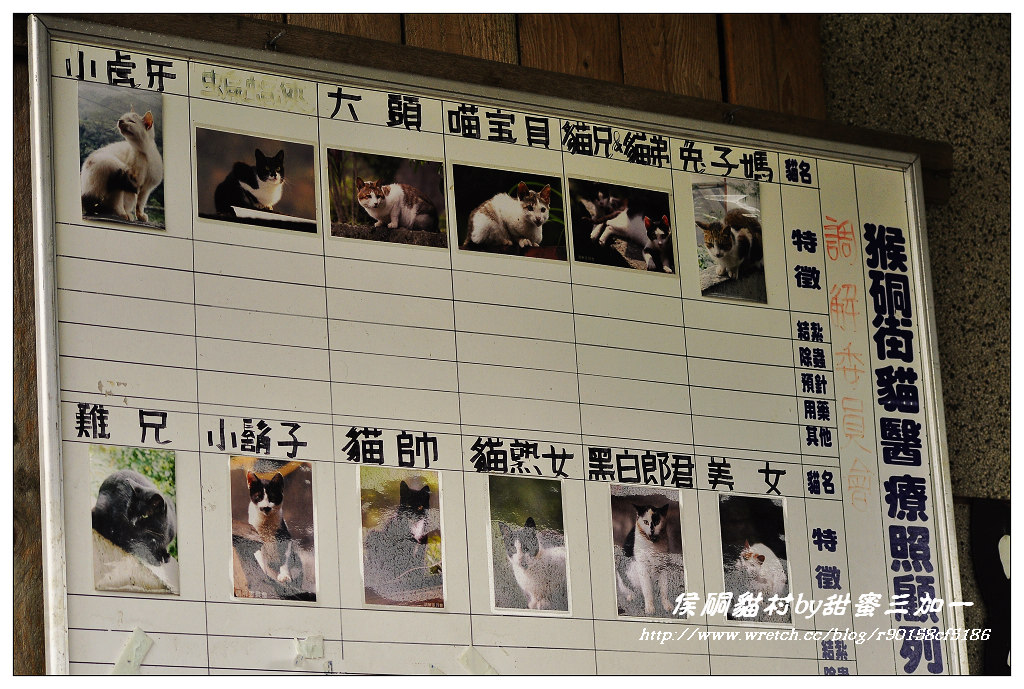 猴硐街貓醫療照顧列
貓名
兔子媽
貓兄&貓弟
喵宝貝
大頭
小虎牙
特徵
結紮
除蟲
預針
用藥
其他
貓名
美女
黑白郎君
貓熟女
貓帥
小鬍子
難兄
特徵
結紮
除蟲
侯硐貓村by甜蜜三加一
http://www.wretch.cc/blog/r90158cf5186